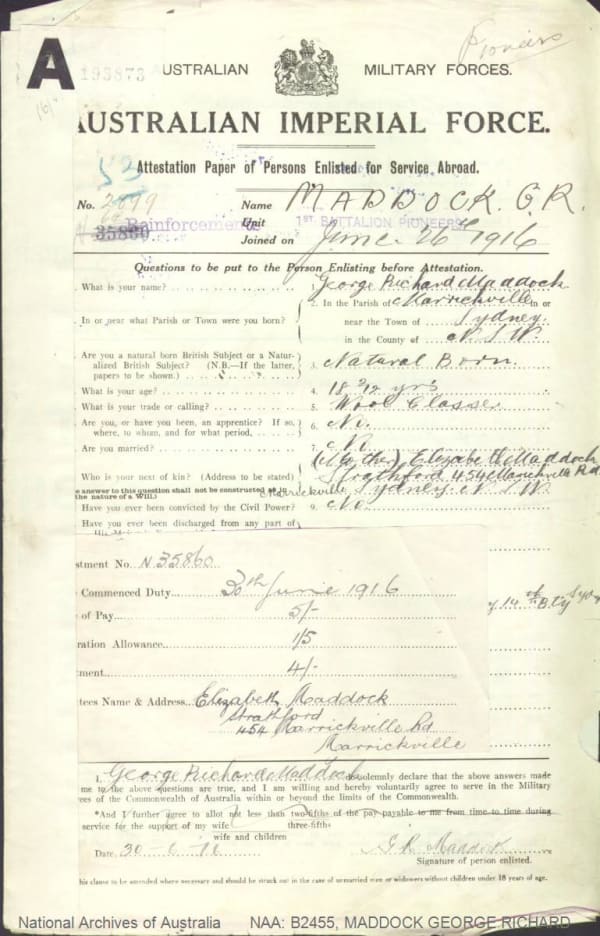 Pioneers
A 193873
USTRALIAN MILITARY FORCES.
AUSTRALIAN IMPERIAL FORCE.
Attestation Paper of Persons Enlisted for Service Abroad.
53
No. 2899 Name MADDOCK. G.R.
Reinforcements Unit 1ST. BATTALION PIONEERS
Joined on June 26th 1916
Questions to be put to the Person Enlisting before Attestation.
What is your name? 1. George Richard Maddock
In or near what Parish or Town were you born? 2. In the Parish of Marrickville in or
near the Town of Sydney
in the County of N.S.W.
Are you a natural born British Subject or a Natur-
alized British Subject? (N.B.—If the latter, 3. Natural Born.
papers to be shown.)
What is your age? 4. 18 yrs
What is your trade or calling? 5. Wool Classer
Are you, or have you been, an apprentice? If so, 6. No.
where, to whom, and for what period,
Are you married? 7. No
(Mother) Elizabeth Maddock
Who is your next of kin? (Address to be stated) Strathford 454 Marrickville Rd
e answer to this question shall not be constructed as in Marrickville Sydney N.S.W.
the nature of a Will.)
Have you ever been convicted by the Civil Power? 9. No.
Have you ever been discharged from any part of
stment No. N.35860
Commenced Duty 30th June 1916
of Pay 5/-
ration Allowance 1/5
ment 4/-
tees Name & Address Elizabeth Maddock
Strathford
454 Marrickville Rd
Marrickville
I, George Richard Maddock do solemnly declare that the above answers made
me to the above questions are true, and I am willing and hereby voluntarily agree to serve in the Military
ces of the Commonwealth of Australia within or beyond the limits of the Commonwealth.
*And I further agree to allot not less than two-fifths of the pay payable to me from time to time during
three-fifths
service for the support of my wife
wife and children
Date 30-6-16 G R Maddock
Signature of person enlisted.
his clause to be amended where necessary and should be struck out in the case of unmarried men or widowers without children under 18 years of age.
National Archives of Australia NAA: B2455, MADDOCK GEORGE RICHARD